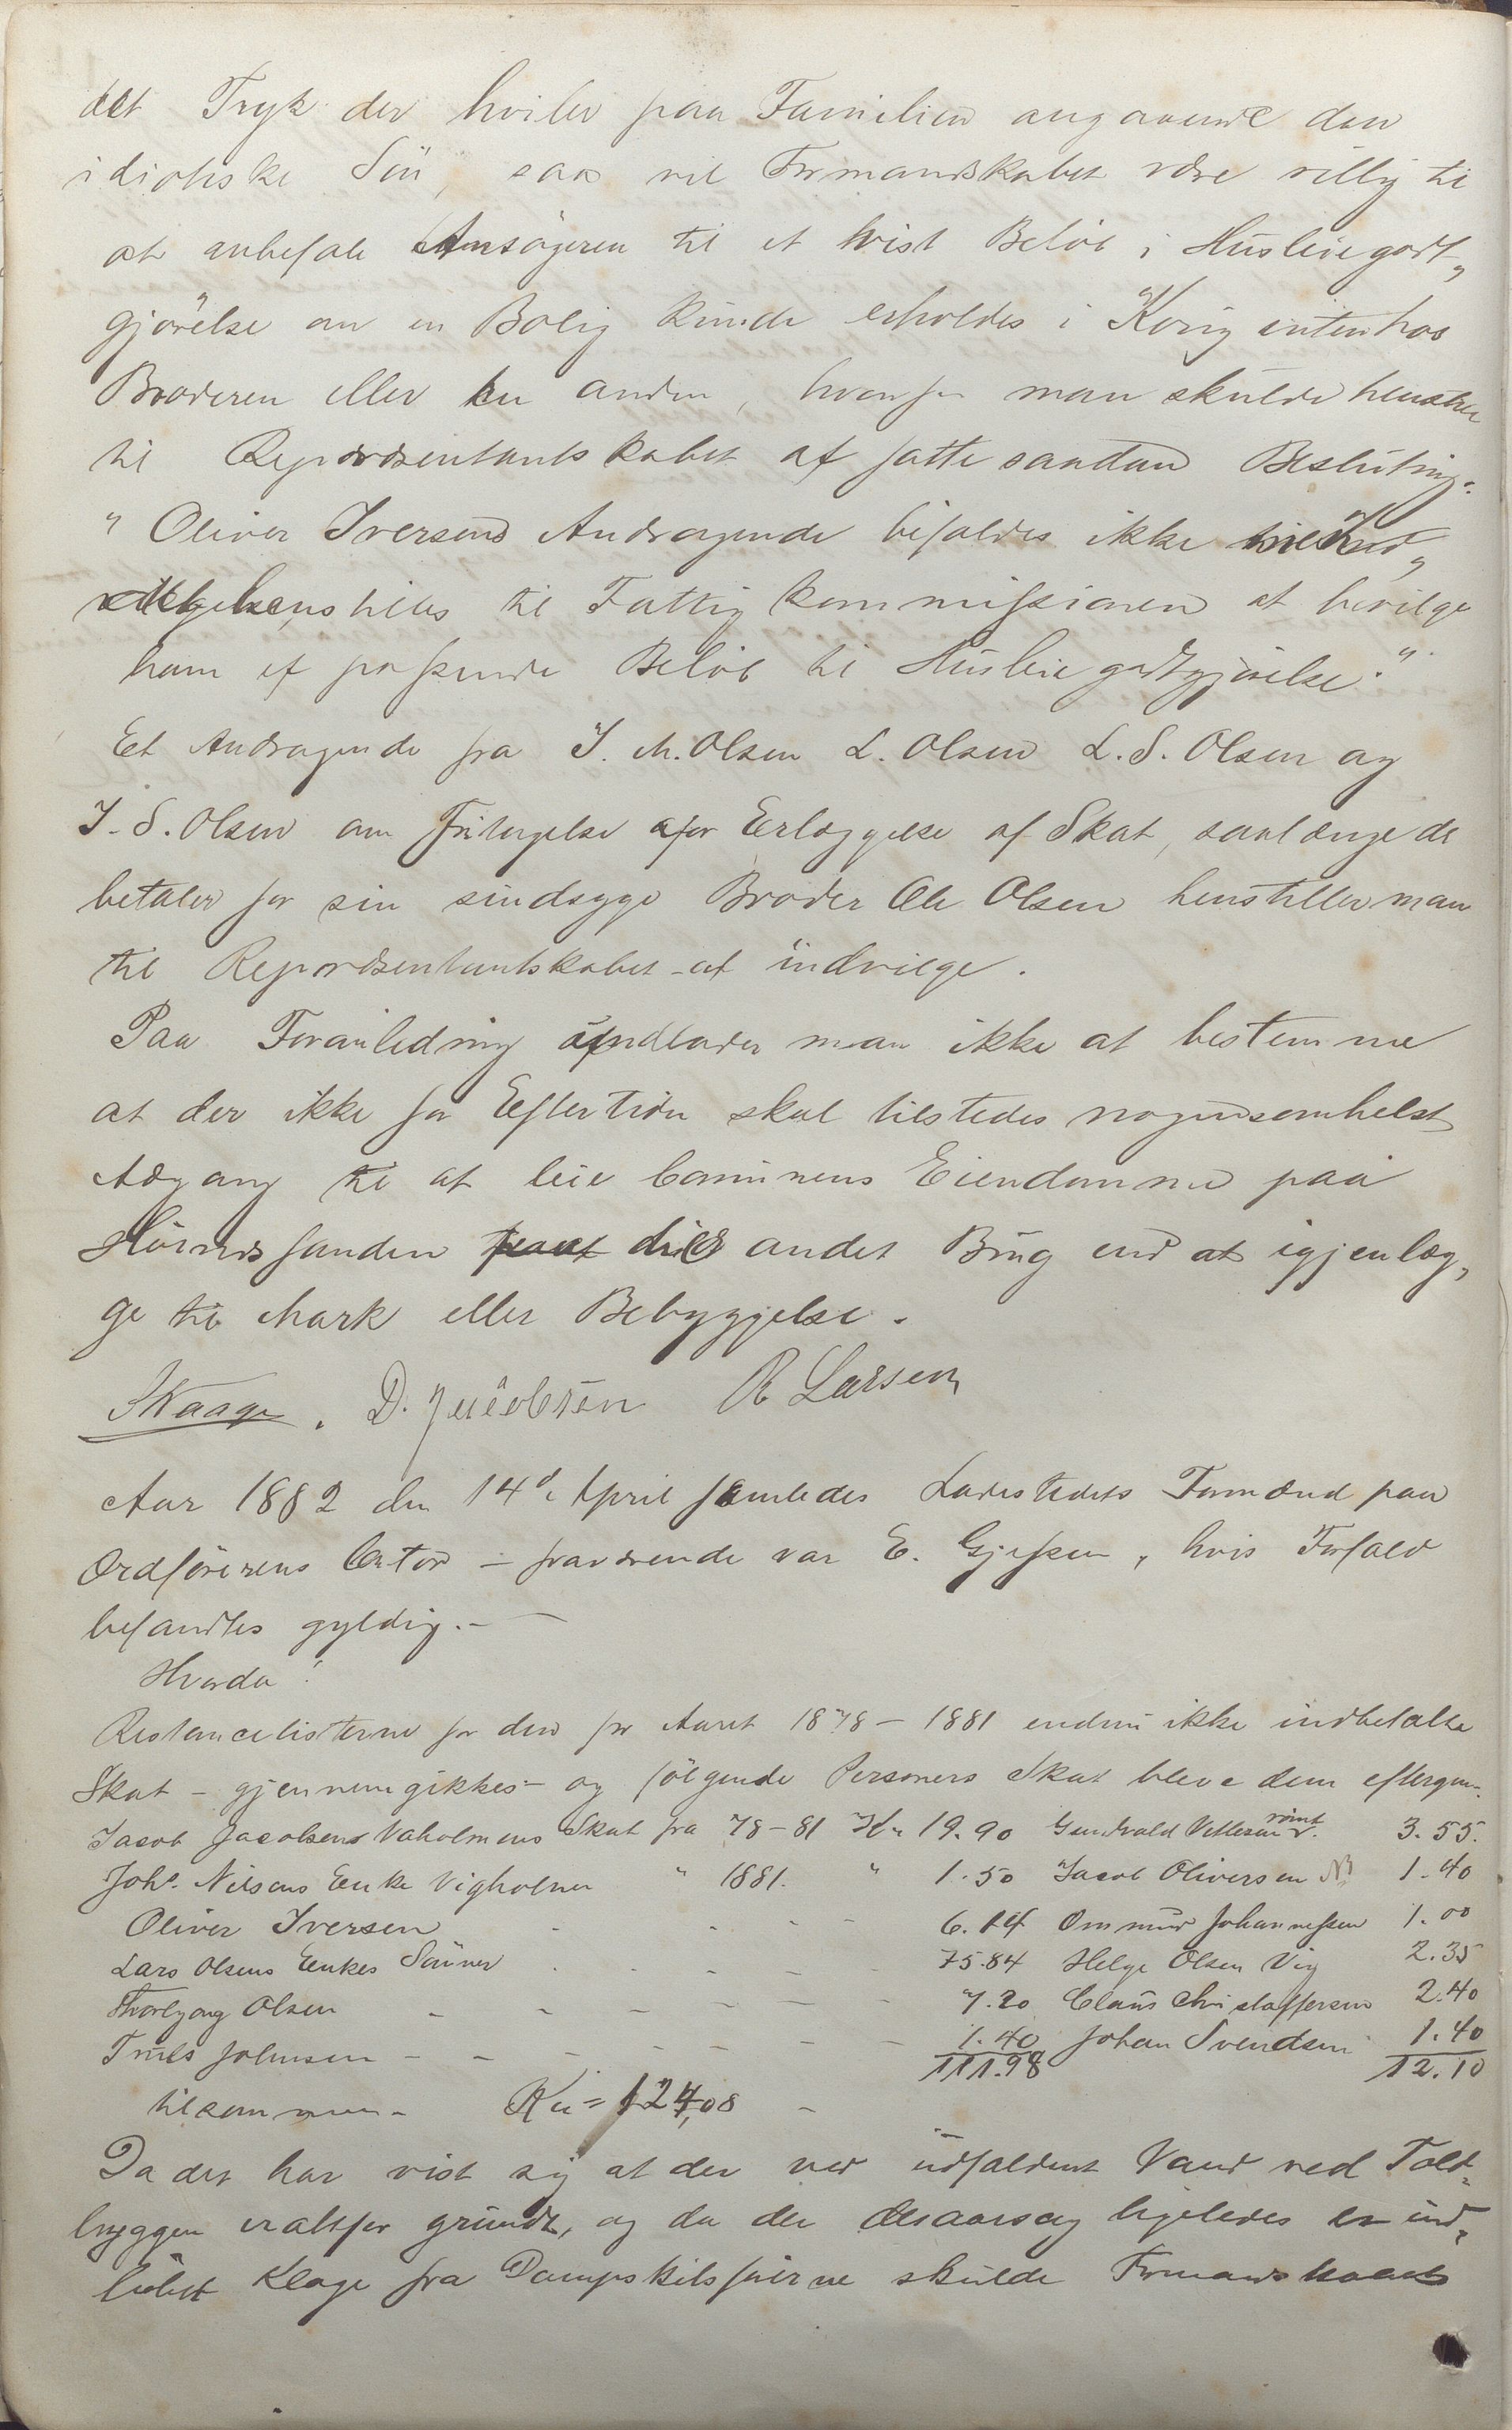 det Tryk der hviler paa Familien angaaende den
idiotiske Sön, saa vil Formandskabet være villig til
at anbefale Ansögeren til et vist Belöb i Husleiegodt„
gjörelse om en Bolig kunde erholdes i Kopvig enten hos
Broderen eller en anden, hvorfor man skulde henstille
til Repræsentantskabet at fatte saadan Beslutning:
„Oliver Iversens Andragende bifaldes ikke
henstilles til Fattigkommissionen at bevilge
ham et passende Belöb til Husleiegodtgjörelse."
Et Andragende fra J. M. Olsen L. Olsen L. S. Olsen og
J. S. Olsen om Fritagelse for Erlæggelse af Skat, saalænge de
betaler for sin sindsyge Broder Ole Olsen henstiller man
til Repræsentantskabet at indvilge.
Paa Foranledning undlader man ikke at bestemme
at der ikke for Eftertiden skal tilstedes nogensomhelst
Adgang til at leie Comunens Eiendomme paa
sanden til andet Brug end at igjenlæg„
ge til Mark eller Bebyggelse.
Skaage. D. Jacobsen R Larsen
Aar 1882 den 14de April samledes Ladestedets Formænd paa
Ordförerens Contor – fraværende var E. Gjessen, hvis Forfald
befandtes gyldig. –
Hvorda:
Restancelisterne for den for Aaret 1878 – 1881 endnu ikke indbetalte
Skat – gjennemgikkes – og fölgende Personers Skat bleve dem eftergiv.
Jacob Jacobsens Vaholmens Skat fra 78 – 81 Kr 19.90 Gundvald Vettesen römt 3.55.
Johs. Nilsens Enke Vigholmen " 1881. " 1.50 Jacob Oliversen 1.40
Oliver Iversen - - - - 6.14 Ommund Johannessen 1.00
Lars Olsens Enkes Sönner - - - - - 75.84 Helge Olsen Vig 2.35
Thorbjörg Olsen - - - - - - 7.20 Claus Christoffersen 2.40
Truls Johnsen - - - - - - 1.40 Johan Svendsen 1.40
111.98 12.10
tilsammen – Kr = 124,08 –
Da det har vist sig at der ved udfaldent Vand ved Told„
bryggen er altfor grundt, og da der desaarsag ligeledes er ind„
löbet Klage fra Dampskibsförerne skulde Formandskabet